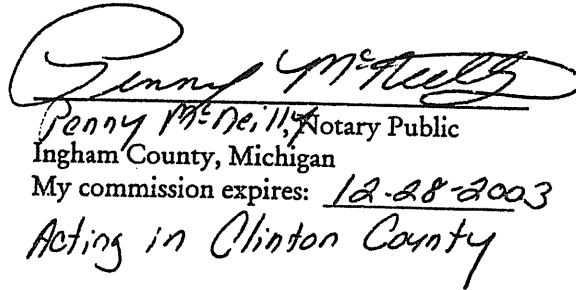 Penny McNeilly
Penny McNeilly, Notary Public
Ingham County, Michigan
My commission expires: 12-28-2003
Acting in Clinton County